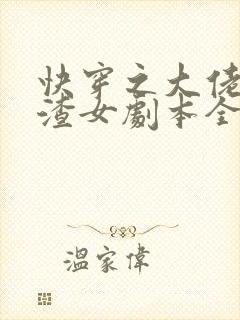 快穿之大佬
渣女劇本全
溫家偉